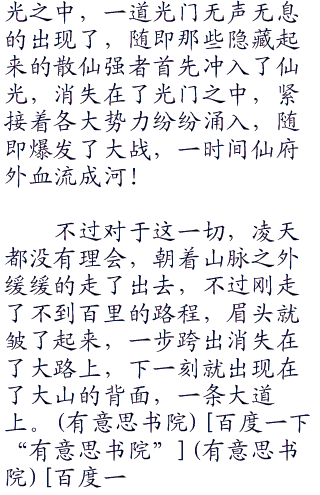 光之中，一道光门无声无息
的出现了，随即那些隐藏起
来的散仙强者首先冲入了仙
光，消失在了光门之中，紧
接着各大势力纷纷涌入，随
即爆发了大战，一时间仙府
外血流成河！
不过对于这一切，凌天
都没有理会，朝着山脉之外
缓缓的走了出去，不过刚走
了不到百里的路程，眉头就
皱了起来，一步跨出消失在
了大路上，下一刻就出现在
了大山的背面，一条大道
上。(有意思书院) [百度一下
“有意思书院”] (有意思书
院) [百度一